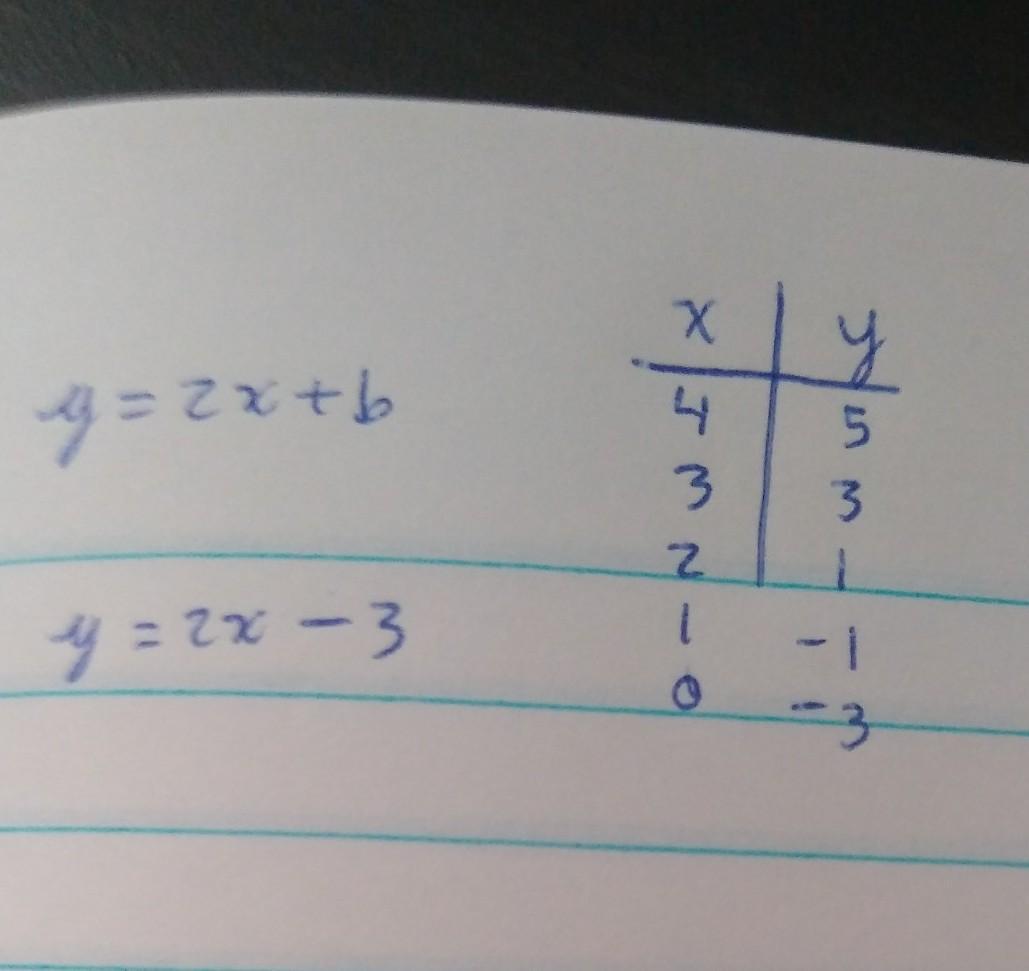 x y
y = 2x + b
4 5
3 3
2 1
y = 2x - 3
1 -1
0 -3